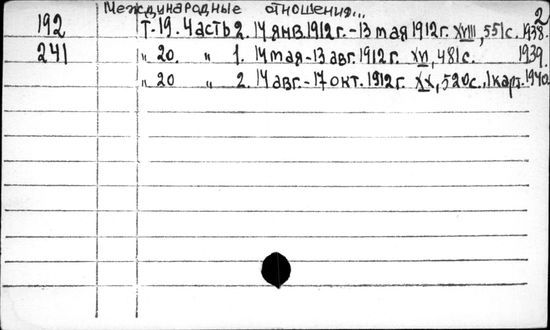 Международные отношения...
2
192 Т-19. Часть 2. 14 янв. 1912 г. - 13 мая 1912 г. XVIII, 551 с. 1938.
241 " 20. " 1. 14 мая - 13 авг. 1912 г. XVI, 481 с. 1939.
" 20 " 2. 14 авг. - 17 окт. 1912 г. XX, 520 с., 1 карт. 1940.